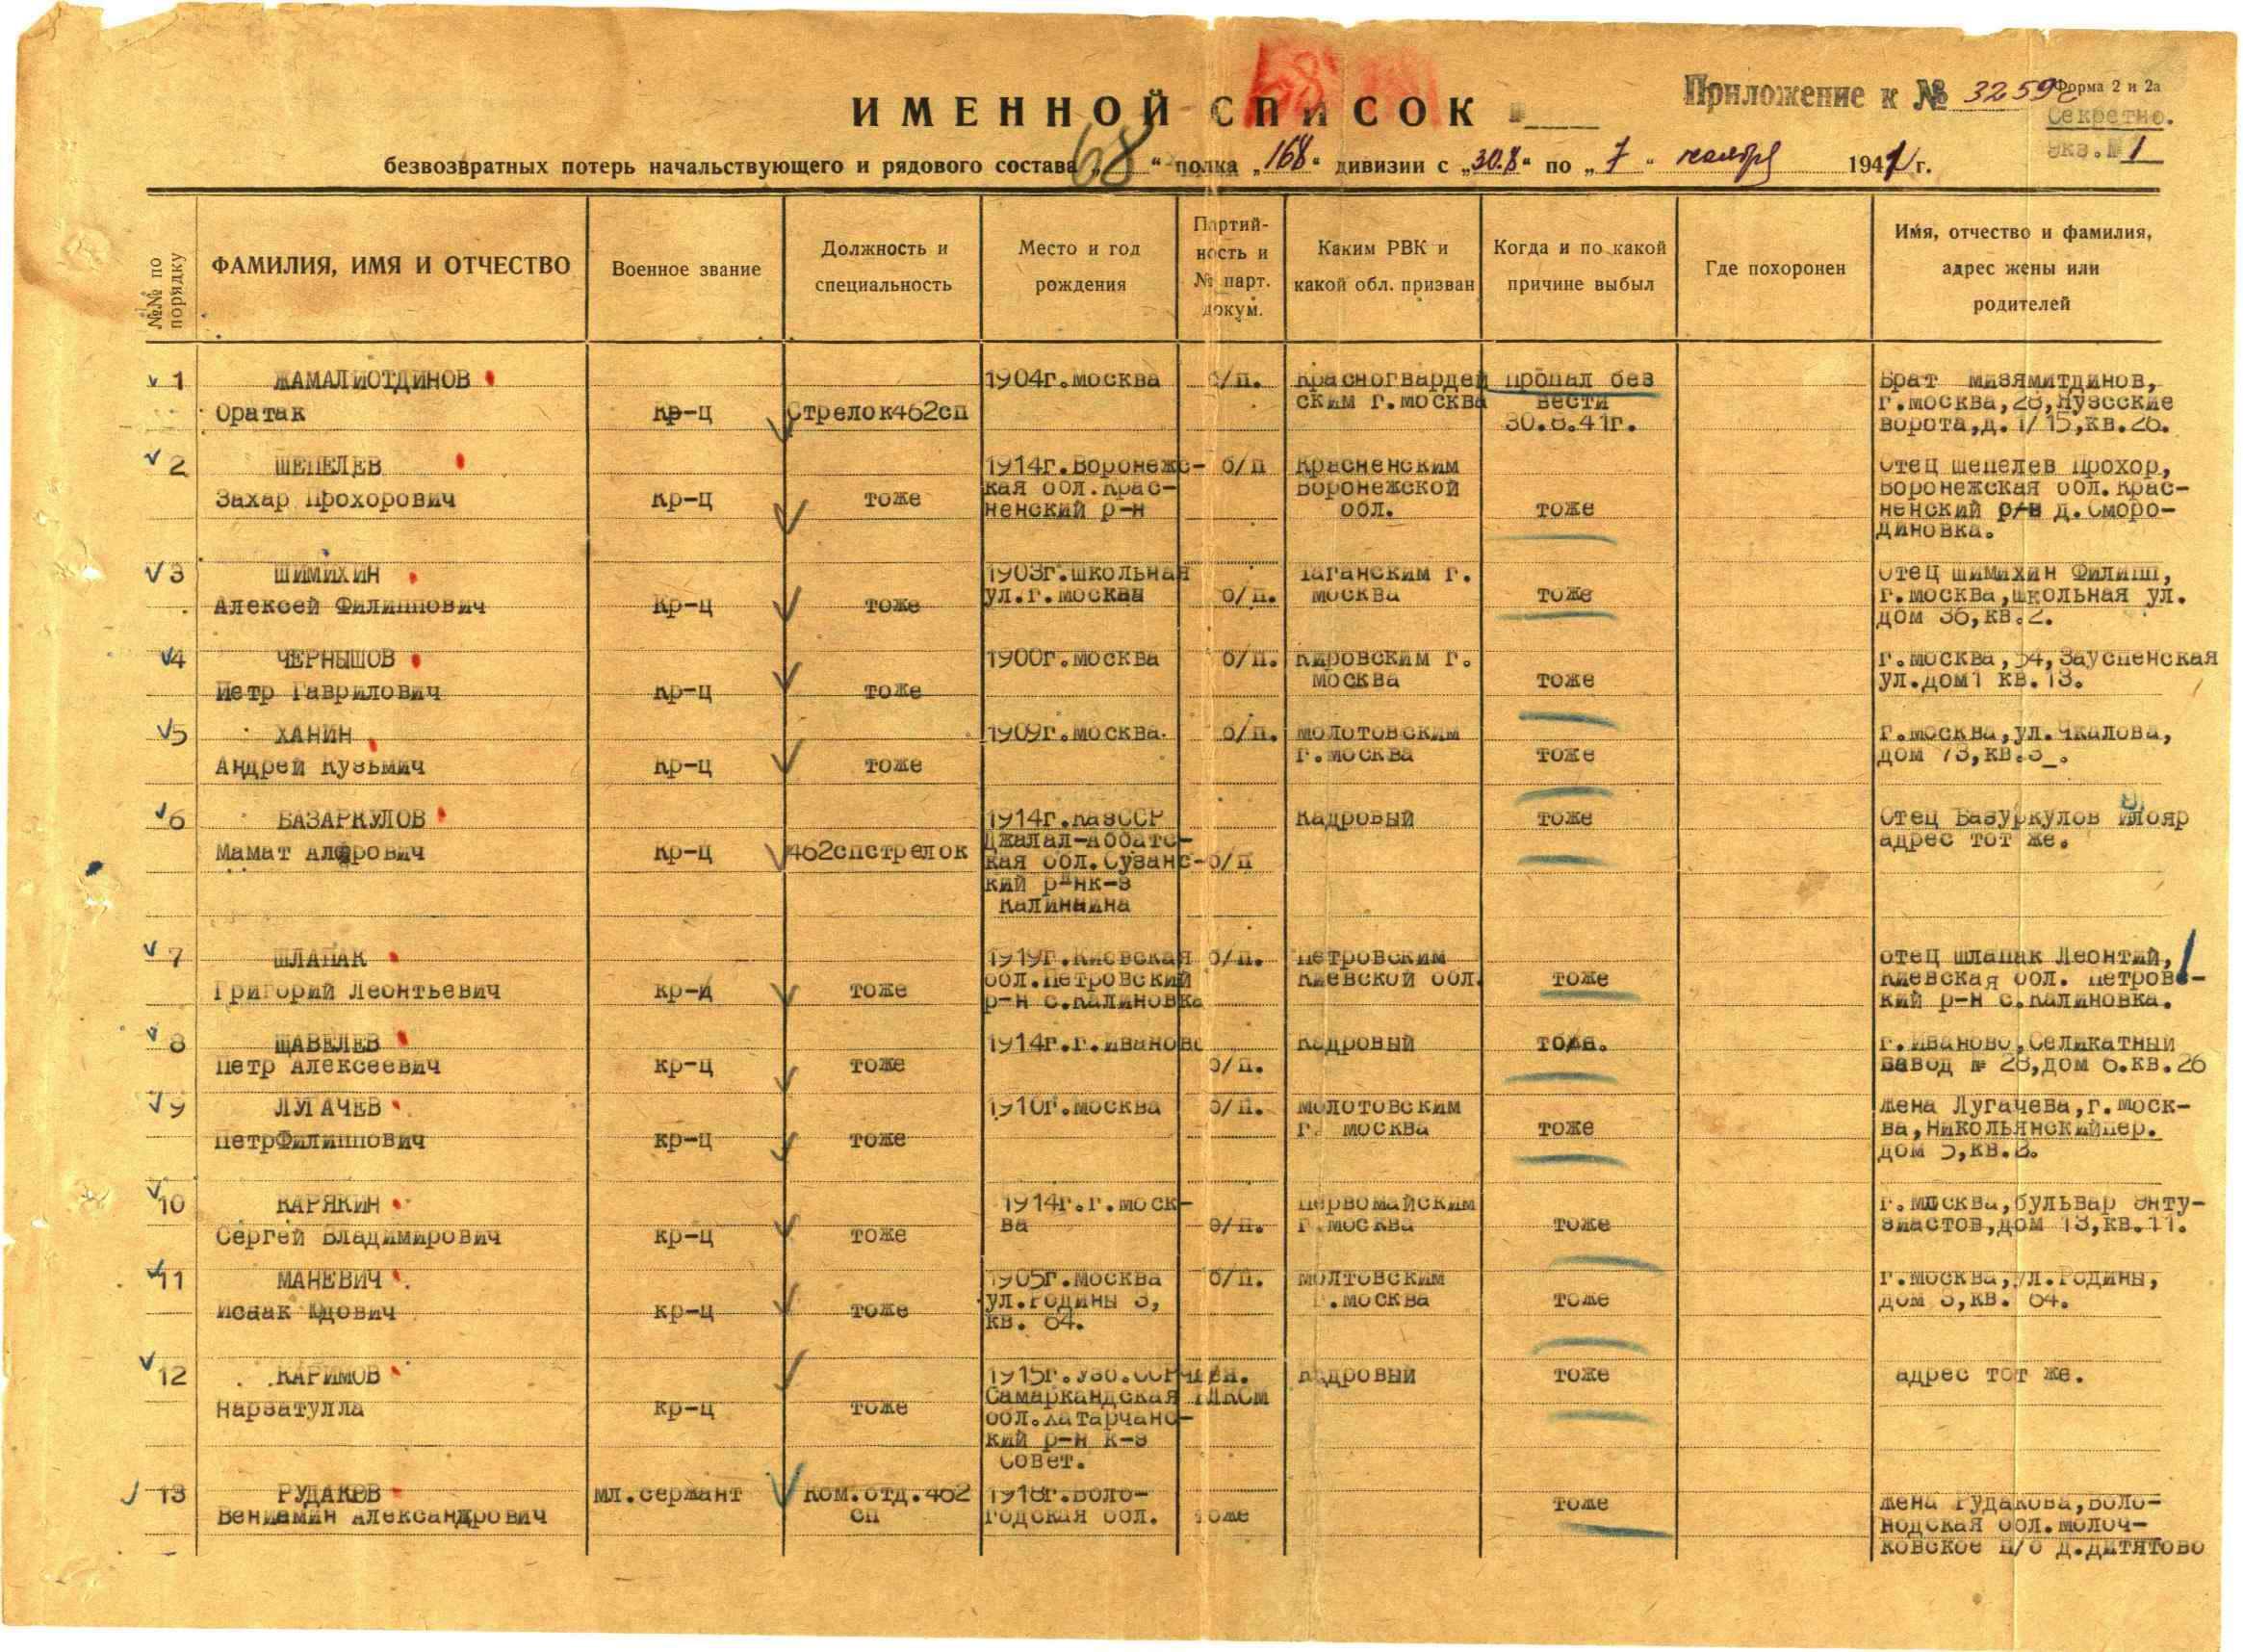 ИМЕННОЙ СПИСОК
Приложение к № 3259с
Форма 2 и 2а
Секретно.
Экз.№ 1
безвозвратных потерь начальствующего и рядового состава „68“ полка „168“ дивизии с „30.8“ по „7“ ноября 1941 г.
№№ по порядку
ФАМИЛИЯ, ИМЯ И ОТЧЕСТВО
Военное звание
Должность и
специальность
Место и год
рождения
Партий-
ность и
№ парт.
докум.
Каким РВК и
какой обл. призван
Когда и по какой
причине выбыл
Где похоронен
Имя, отчество и фамилия,
адрес жены или
родителей
1 ЖАМАЛИОТДИНОВ 1904г.москва б/п. Красногвардей пропал без Брат мизямитдинов,
Оратак кр-ц Стрелок462сп ским г.москва вести г.москва,28,
30.8.41г. ворота,д.1/15,кв.26.
2 ШЕПЕЛЕВ 1914г.Воронежс- б/п Красненским Отец Шепелев Прохор,
Захар Прохорович кр-ц тоже кая обл.Крас- Воронежской Воронежская обл.Крас-
ненский р-н обл. тоже ненский р-н д.Сморо-
диновка.
3 ШИМИХИН 1903г.школьная Таганским г. Отец шимихин Филипп,
Алексей Филиппович кр-ц тоже ул.г.москва б/п. москва тоже г.москва,школьная ул.
дом 36,кв.2.
4 ЧЕРНЫШОВ 1900г.москва б/п. Кировским г. г.москва,54,Зауспенская
Петр Гаврилович кр-ц тоже москва тоже ул.дом1 кв.13.
5 ХАНИН 1909г.москва. б/п. молотовским г.москва,ул.Чкалова,
Андрей Кузьмич кр-ц тоже г.москва тоже дом 73,кв.3_.
6 БАЗАРКУЛОВ 1914г.КазССР Кадровый тоже Отец Базуркулов
Мамат кр-ц 462спстрелок Джалал-Аббатс- адрес тот же.
кая обл.Сузанс- б/п
кий р-нк-з
Калинина
7 ШЛАПАК 1919г.Киевская б/п. Петровским отец шлапак Леонтий,
Григорий Леонтьевич кр-ц тоже обл.Петровский Киевской обл. тоже Киевская обл. Петровс-
р-н с.Калиновка кий р-н с.Калиновка.
8 ЩАВЕЛЕВ 1914г.г.Иваново Кадровый тоже. г.Иваново,Селикатный
Петр Алексеевич кр-ц тоже б/п. завод № 28,дом 6.кв.26
9 ЛУГАЧЕВ 1910г.москва б/п. молотовским жена Лугачева,г.моск-
ПетрФилиппович кр-ц тоже г. москва тоже ва,Никольянскийпер.
дом 5,кв.8.
10 КАРЯКИН 1914г.г.моск- Первомайским г.москва,бульвар Энту-
Сергей Владимирович кр-ц тоже ва б/п. г.москва тоже зиастов,дом 13,кв.11.
11 МАНЕВИЧ 1905г.москва б/п. молтовским г.москва,ул.Родины,
Исаак Юдович кр-ц тоже ул.Родины 3, г.москва тоже дом 3,кв. 64.
кв. 64.
12 КАРИМОВ 1915г.Узб.ССР член. Кадровый тоже адрес тот же.
Нарзатулла кр-ц тоже Самаркандская ВЛКСМ
обл.Катарчанс-
кий р-н к-з
Совет.
13 РУДАКОВ мл.сержант Ком.отд.462 1918г.Воло- тоже жена Рудакова,Воло-
Вениамин Александрович сп годская обл. тоже годская обл.молоч-
ковское п/о д.дитятово